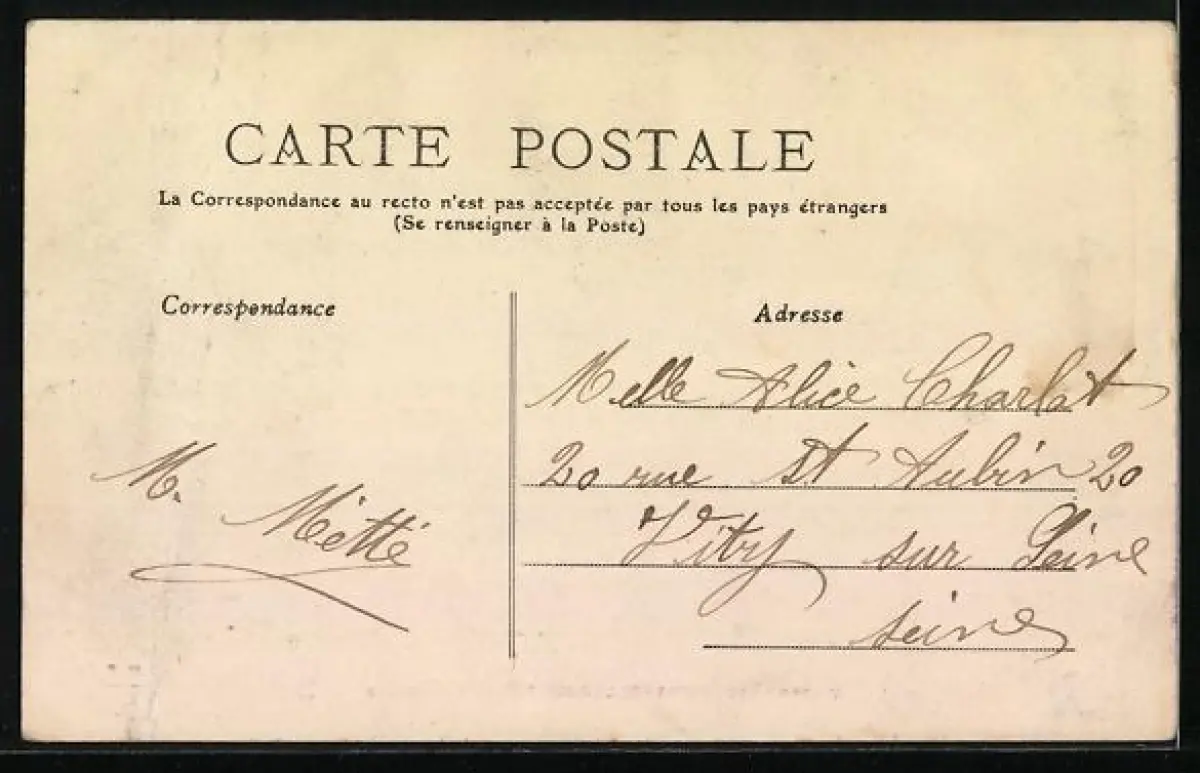 CARTE POSTALE
La Correspondance au recto n'est pas acceptée par tous les pays étrangers
(Se renseigner à la Poste)
Correspondance
M. Métté
Adresse
Melle Alice Charlat
20 rue St Aubin 20
Vitry sur Seine
Seine